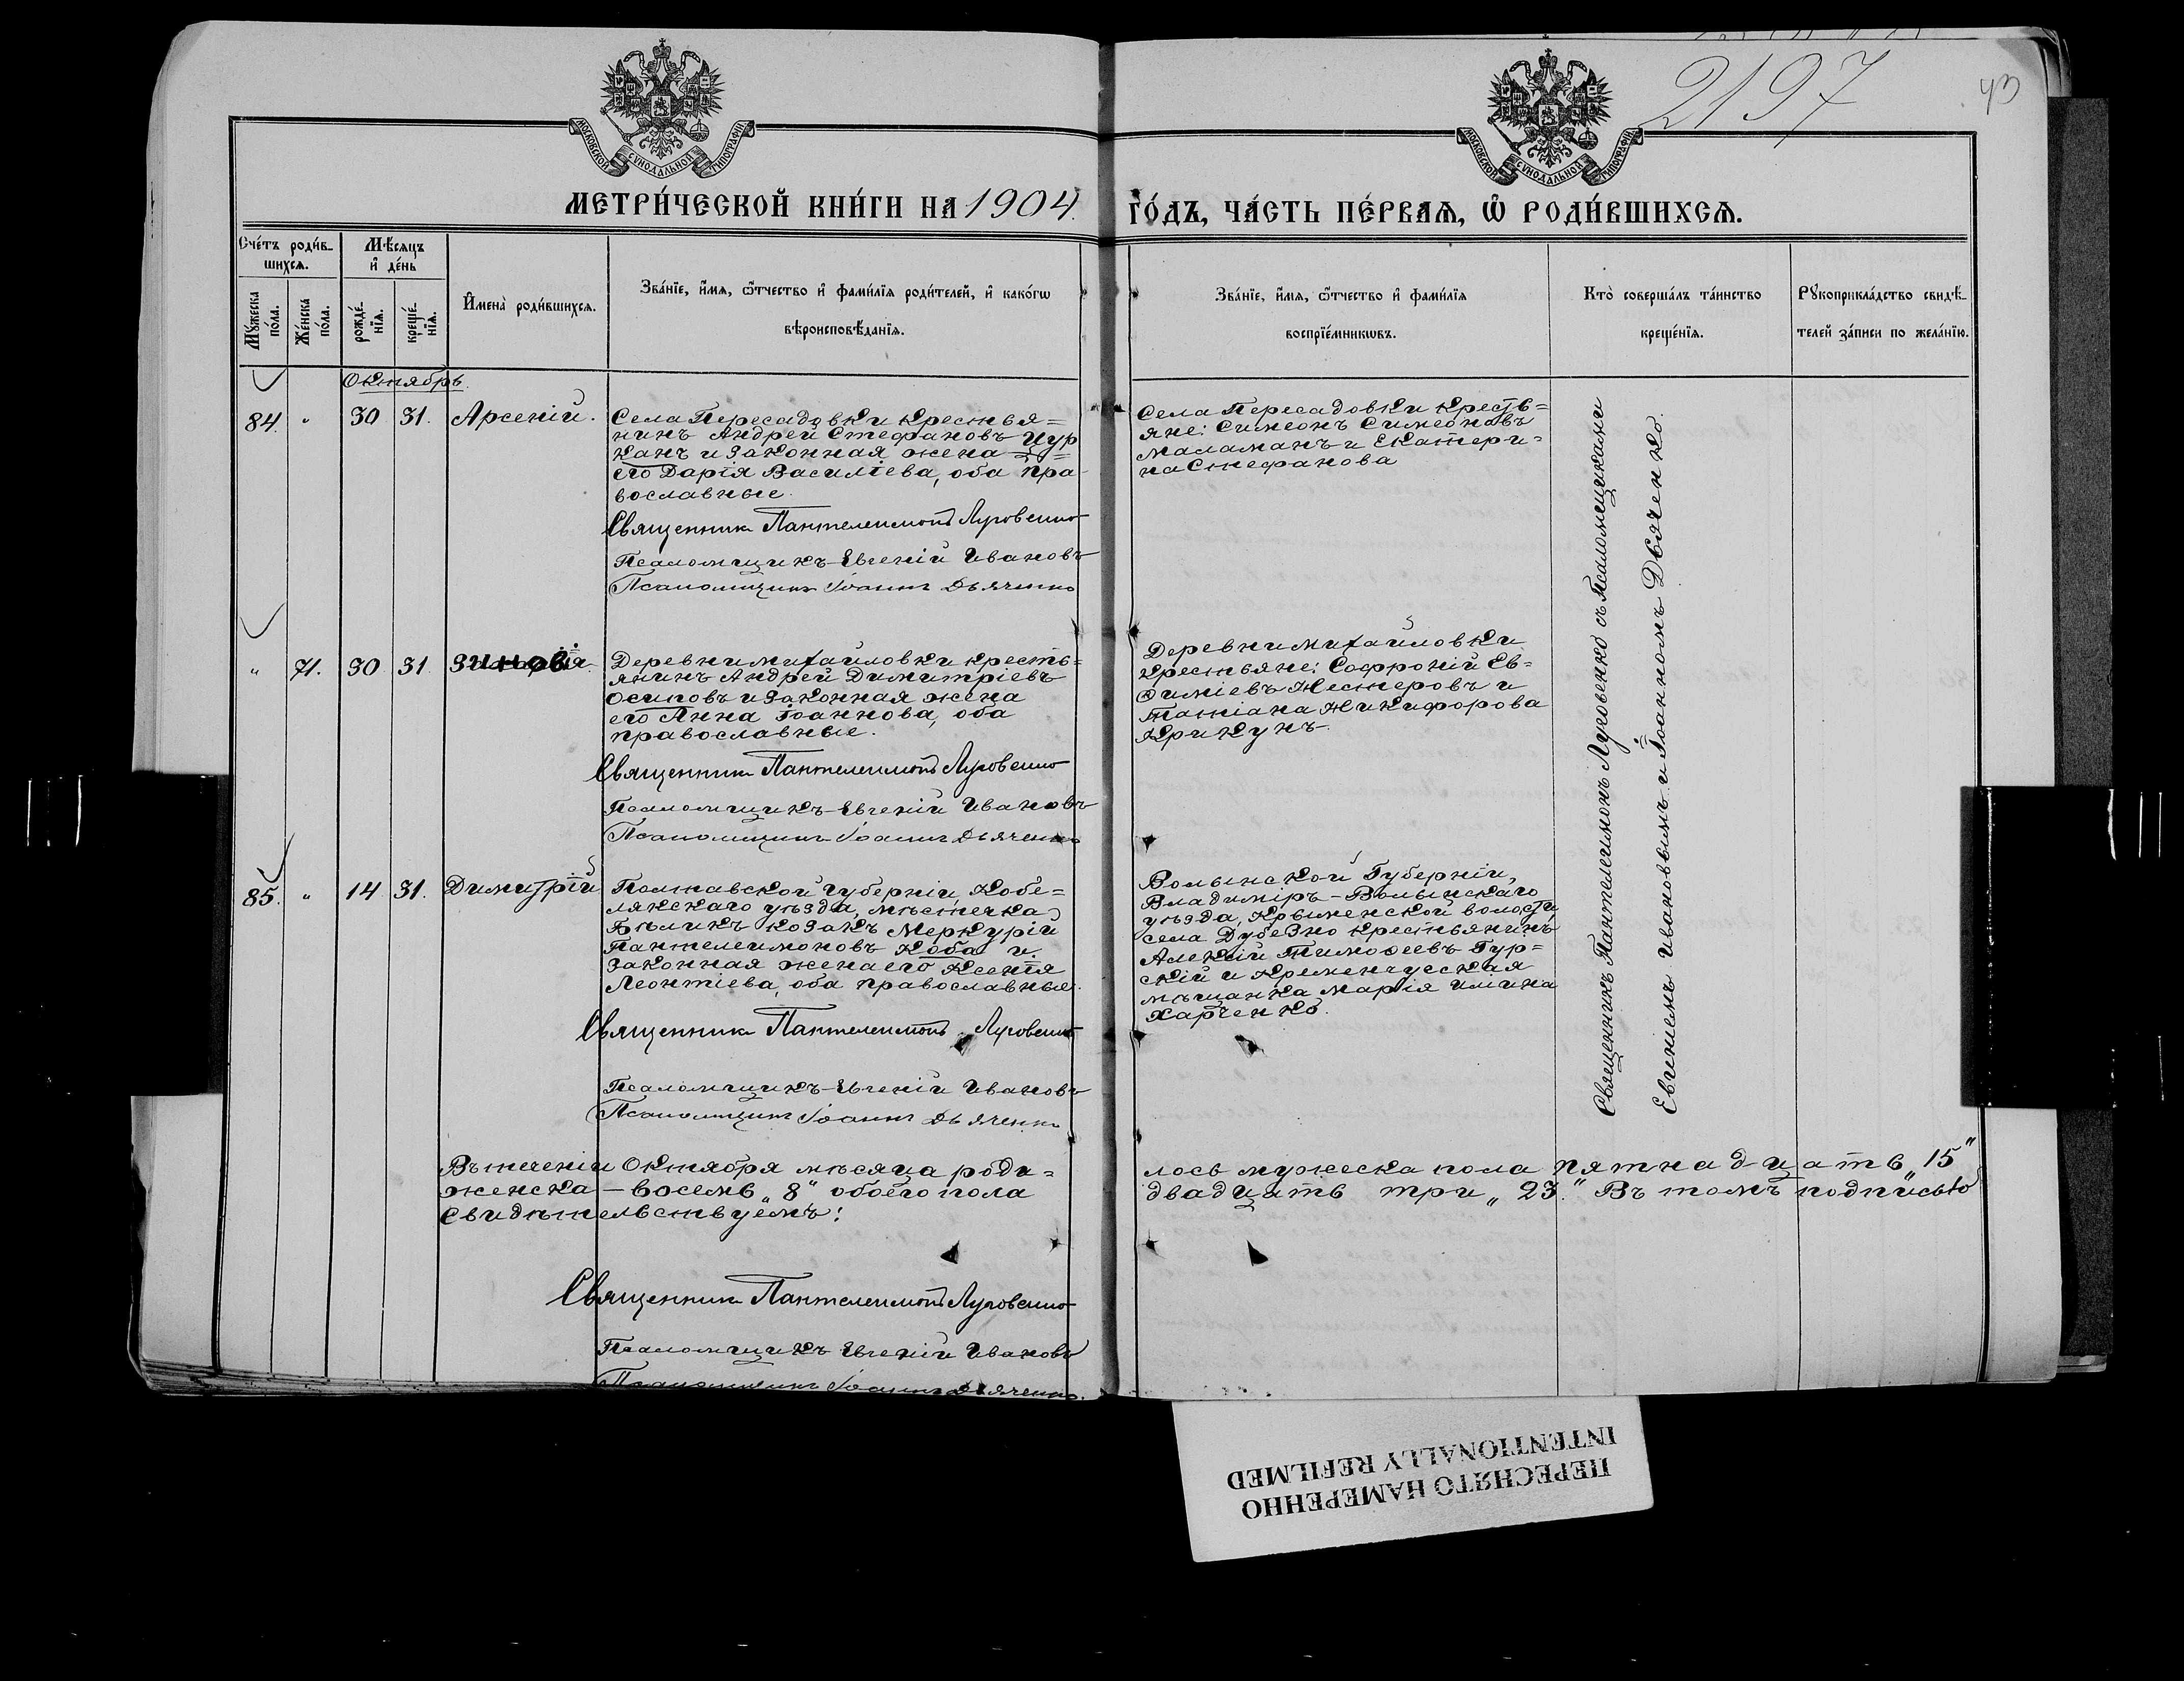 МОСКОВСКОЙ СУНОДАЛЬНОЙ ТИПОГРАФІИ
МОСКОВСКОЙ СУНОДАЛЬНОЙ ТИПОГРАФІИ
2197
43
МЕТРИ́ЧЕСКОЙ КНИ́ГИ НА 1904.
ГО́ДЪ, ЧА́СТЬ ПЕ́РВАѦ, Ѿ РОДИ́ВШИХСѦ.
Сче́тъ роди́в-
шихсѧ.
Мѣ́сяцъ
и҆ де́нь
Мꙋ́жеска
по́ла.
Же́нска
по́ла.
рожде́-
нїѧ.
креще́-
нїѧ.
И҆мена̀ роди́вшихсѧ.
Зва́нїе, и҆́мѧ, ѻ҆́тчество и҆ фами́лїѧ роди́телей, и҆ како́гѡ
вѣроисповѣ́данїѧ.
Зва́нїе, и҆́мѧ, ѻ҆́тчество и҆ фами́лїѧ
воспрїе́мникѡвъ.
Кто̀ соверша́лъ та́инство
креще́нїѧ.
Рꙋкоприкла́дство свидѣ́-
телей за́писи по жела́нїю.
Октябрь.
84. " 30 31. Арсеній.
Села Пересадовки крестья=
нинъ Андрей Стефановъ Цур=
канъ и законная жена
его Дарія Василіева, оба пра-
вославные.
Священникъ Пантелеимонъ Луговенко
Псаломщикъ Евгеній Ивановъ
Псаломщикъ Іоаннъ Дьяченко
Села Пересадовки кресть=
яне: Симеонъ Симеоновъ
Маламанъ и Екатери=
на Стефанова
" 71. 30 31 Зиновія
Деревни Михайловки кресть=
янинъ Андрей Димитріевъ
Осиповъ и законная жена
его Анна Іоаннова, оба
православные.
Священникъ Пантелеимонъ Луговенко
Псаломщикъ Евгеній Ивановъ
Псаломщикъ Іоаннъ Дьяченко
Деревни Михайловки
крестьяне: Софроній Ев=
ѳиміевъ Нестеровъ и
Татіана Никифорова
Крикунъ.
85. " 14 31. Димитрій
Полтавской губерніи, Кобе=
лякскаго уѣзда, мѣстечка
Бѣликъ козакъ Меркурій
Пантелеимоновъ Коба и
законная жена его Ксенія
Леонтіева, оба православные.
Священникъ Пантелеимонъ Луговенко
Псаломщикъ Евгеній Ивановъ
Псаломщикъ Іоаннъ Дьяченко
Волынской Губерніи,
Владиміръ-Волынскаго
уѣзда, волости,
села Дубезно крестьянинъ
Алексій Тимоѳеевъ Гур=
скій и Кременчугская
мѣщанка Марія Илина
Харченко.
Священникъ Пантелеимонъ Луговенко съ псаломщиками
Евгеніемъ Ивановымъ и Іоанномъ Дьяченко.
Въ теченіи Октября мѣсяца роди= лось мужеска пола пятнадцать „15"
женска - восемь „8" обоего пола двадцать три „23." Въ томъ подписью
свидѣтельствуемъ:
Священникъ Пантелеимонъ Луговенко
Псаломщикъ Евгеній Ивановъ
Псаломщикъ Іоаннъ Дьяченко.
ПЕРЕСНЯТО НАМЕРЕННО
INTENTIONALLY REFILMED